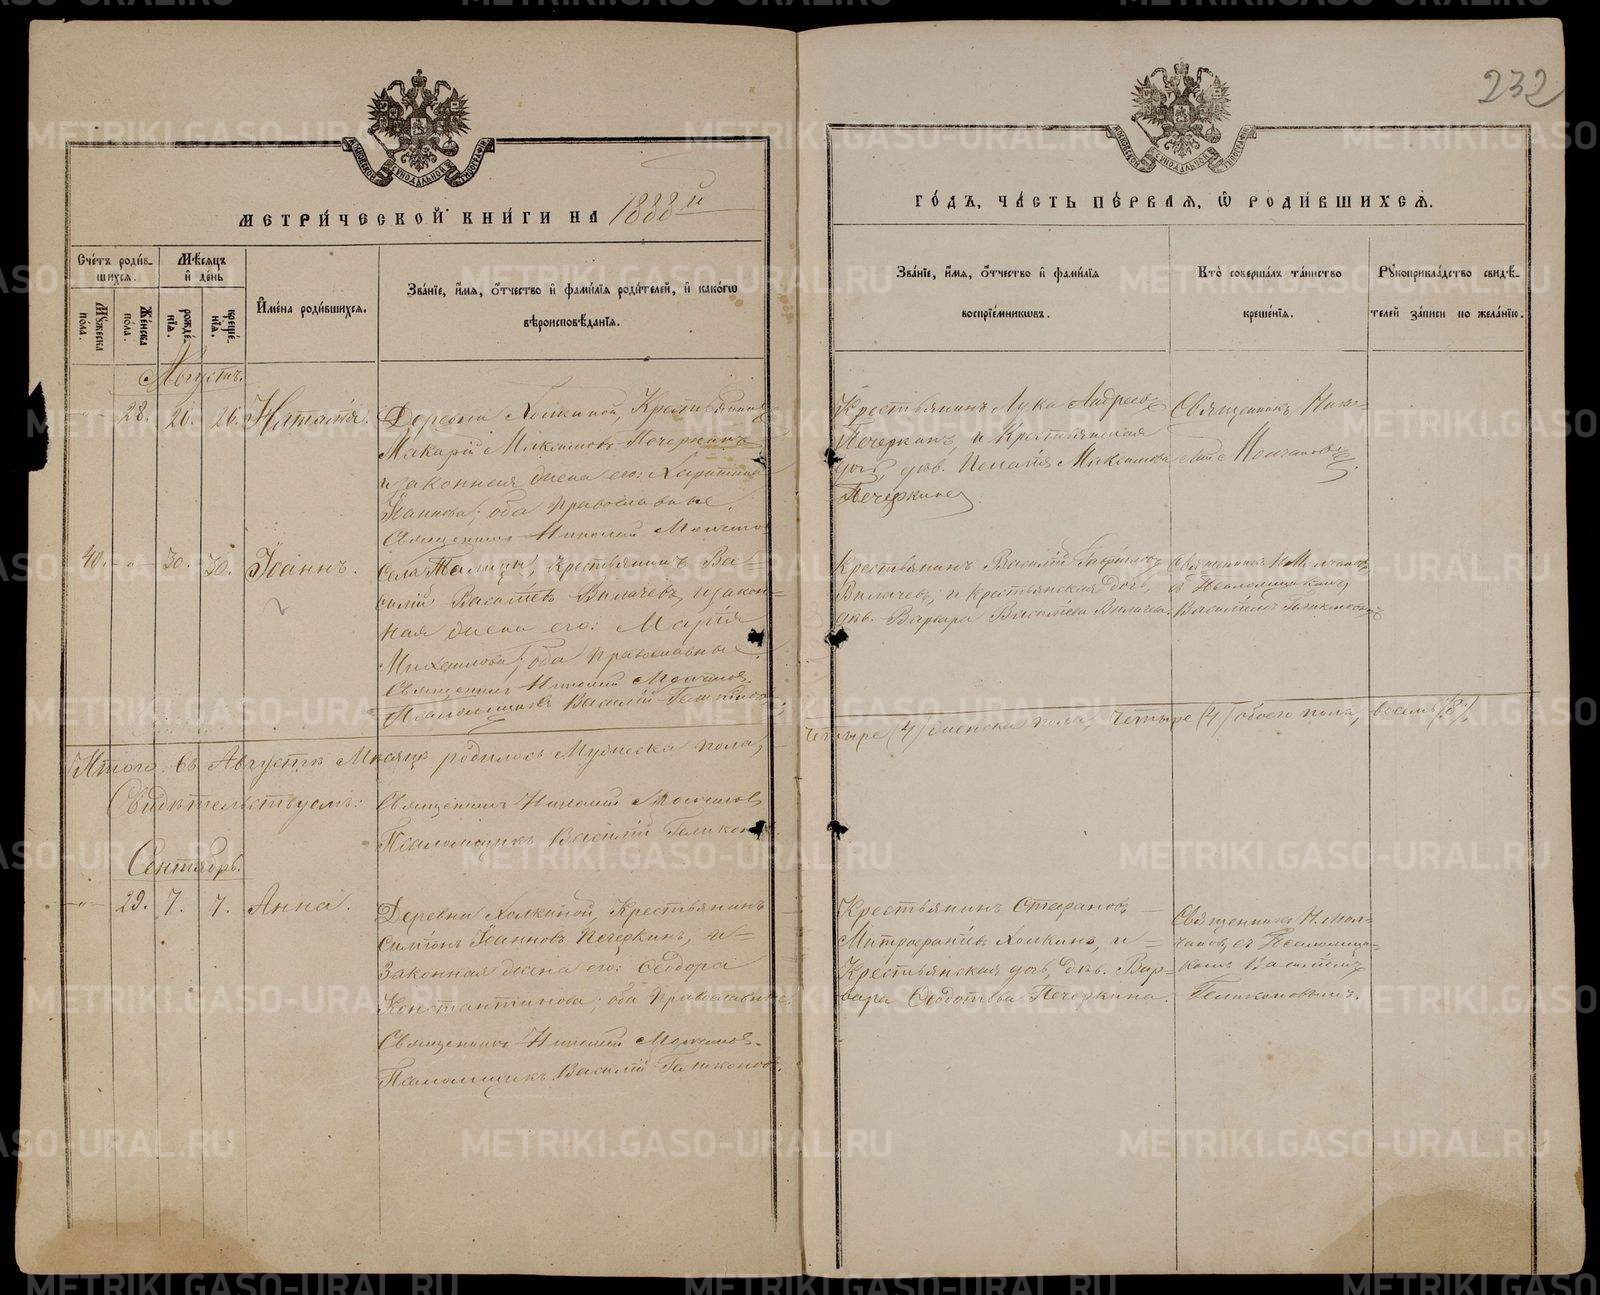 232
МЕТРИ́ЧЕСКОЙ КНИ́ГИ НА 1888й
ГО́ДЪ, ЧА́СТЬ ПЕ́РВАЯ, Ѡ РОДИ́ВШИХСѦ.
Сче́тъ роди́в-
шихся.
Мꙋ́жеска
по́ла.
Же́нска
по́ла.
Мѣ́сяцъ
и҆ де́нь
рожде́-
нїя.
креще́-
нїя.
И҆мена̀ роди́вшихся.
Зва́нїе, и҆́мя, ѻ҆́тчество и҆ фами́лїя роди́телей, и҆ како́гѡ
вѣроисповѣ́данїя.
Зва́нїе, и҆́мя, ѻ҆́тчество и҆ фами́лїя
воспрїе́мникѡвъ.
Кто̀ соверша́лъ та́инство
креще́нїя.
Рꙋкоприкла́дство свидѣ́-
телей за́писи по жела́нїю.
Августъ.
28. 26. 26. Наталія.
Деревни Холкиной, Крестьянинъ
Макарій Максимовъ Печеркинъ
и законная жена его: Харитина
Іоаннова; оба православные.
Священникъ Николай Молчанов
Крестьянинъ Лука Андреев
Печеркинъ, и Крестьянская
дочь, дѣв. Максимова
Печеркина
Священникъ Нико-
лай Молчановъ.
40. - " - 30. 30. Іоаннъ.
Села Талицы, Крестьянинъ Ва-
силій Васильевъ Вилачевъ, и закон-
ная жена его: Марія
Михаилова; оба православные.
Священникъ Николай Молчанов.
Псаломщикъ Василій Геликонов
Крестьянинъ Василій Гавриловъ
Вилачевъ, и Крестьянская дочь,
дѣв. Варвара Васильева Вилачева.
Священникъ Н. Молчановъ
съ Псаломщикомъ
Василіемъ Геликоновымъ
Итого въ Августѣ Мѣсяцѣ родилось Мужеска пола,
четыре (4) женска пола, четыре (4) обоего пола, восемь (8).
Свидѣтельствуемъ:
Священникъ Николай Молчанов
Псаломщикъ Василій Геликонов
Сентябрь.
- " - 29. 7. 7. Анна.
Деревни Холкиной, Крестьянинъ
Симеонъ Іоанновъ Печеркинъ, и
законная жена его: Ѳеодора
Константинова; оба православные.
Священникъ Николай Молчанов.
Псаломщикъ Василій Геликонов.
Крестьянинъ Стефановъ
Митрофановъ Холкинъ, и
Крестьянская дочь, дѣв. Вар-
вара Ѳедотова Печеркина.
Священникъ Н. Мол-
чановъ, съ Псаломщи-
комъ Василіемъ
Геликоновымъ.
METRIKI.GASO-URAL.RU